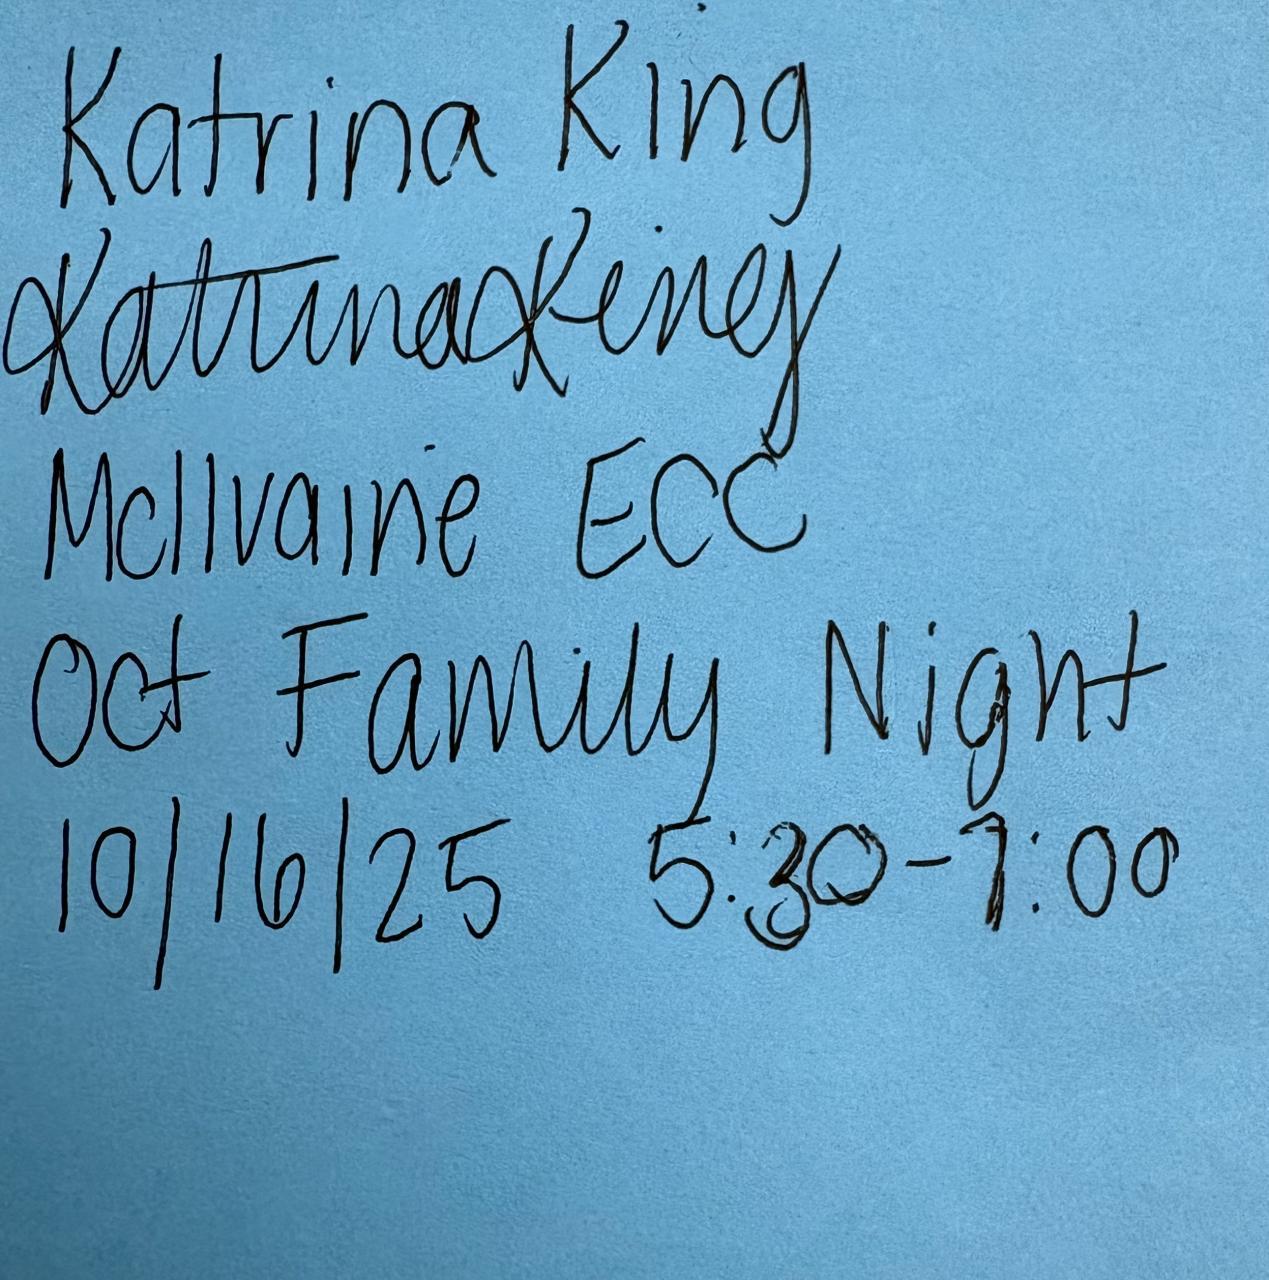 Katrina King
Katrina King
McIlvaine ECC
Oct Family Night
10/16/25 5:30-7:00